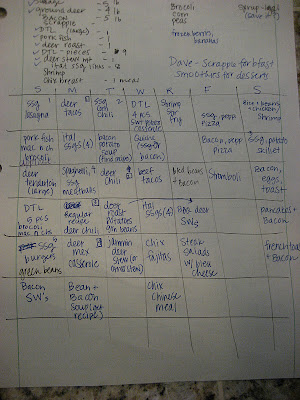 ground deer
BACON
Scrapple
DTL
pork fish - 1
deer roast - 1
DTL - pieces 9
deer stew mt - 1
Shrimp
chix breast - 1 meal
Brocoli
corn
peas
frozen beans,
bananas
Dave - Scrapple for bfast
smoothies for desserts
S M T W R F S
ssg
lasagna
deer
tacos
ssg
corn
chili
DTL
4 pcs
casserole
Shrimp
stir
fry
ssg, pepp
pizza
Rice + beans w/
chicken/
shrimp
pork fish
mac n ch
brocoli
Ital
ssgs (4)
bacon
potato
soup
Quiche
bacon)
Bacon, pepp
pizza
ssg, potato
skillet
deer
tenderloin
(large)
Spaghetti, +
ssg
meatballs
deer
chili
beef
tacos
Red beans
+ Bacon
Stromboli
Bacon,
eggs
toast
DTL
9 pcs
brocoli,
mac n chs
Regular
reuse
deer chili
deer
roast
potatoes
grn beans
Ital
ssgs (4)
BBQ deer
SW's
pancakes +
Bacon
ssg
burgers
green beans
deer
mex
casserole
Jammin
deer
stew (or
Chix
fajitas
Steak
salads
w/ bleu
cheese
french toast
+ Bacon
Bacon
SW's
Bean +
Bacon
Soup (cut
recipe)
Chix
Chinese
meal